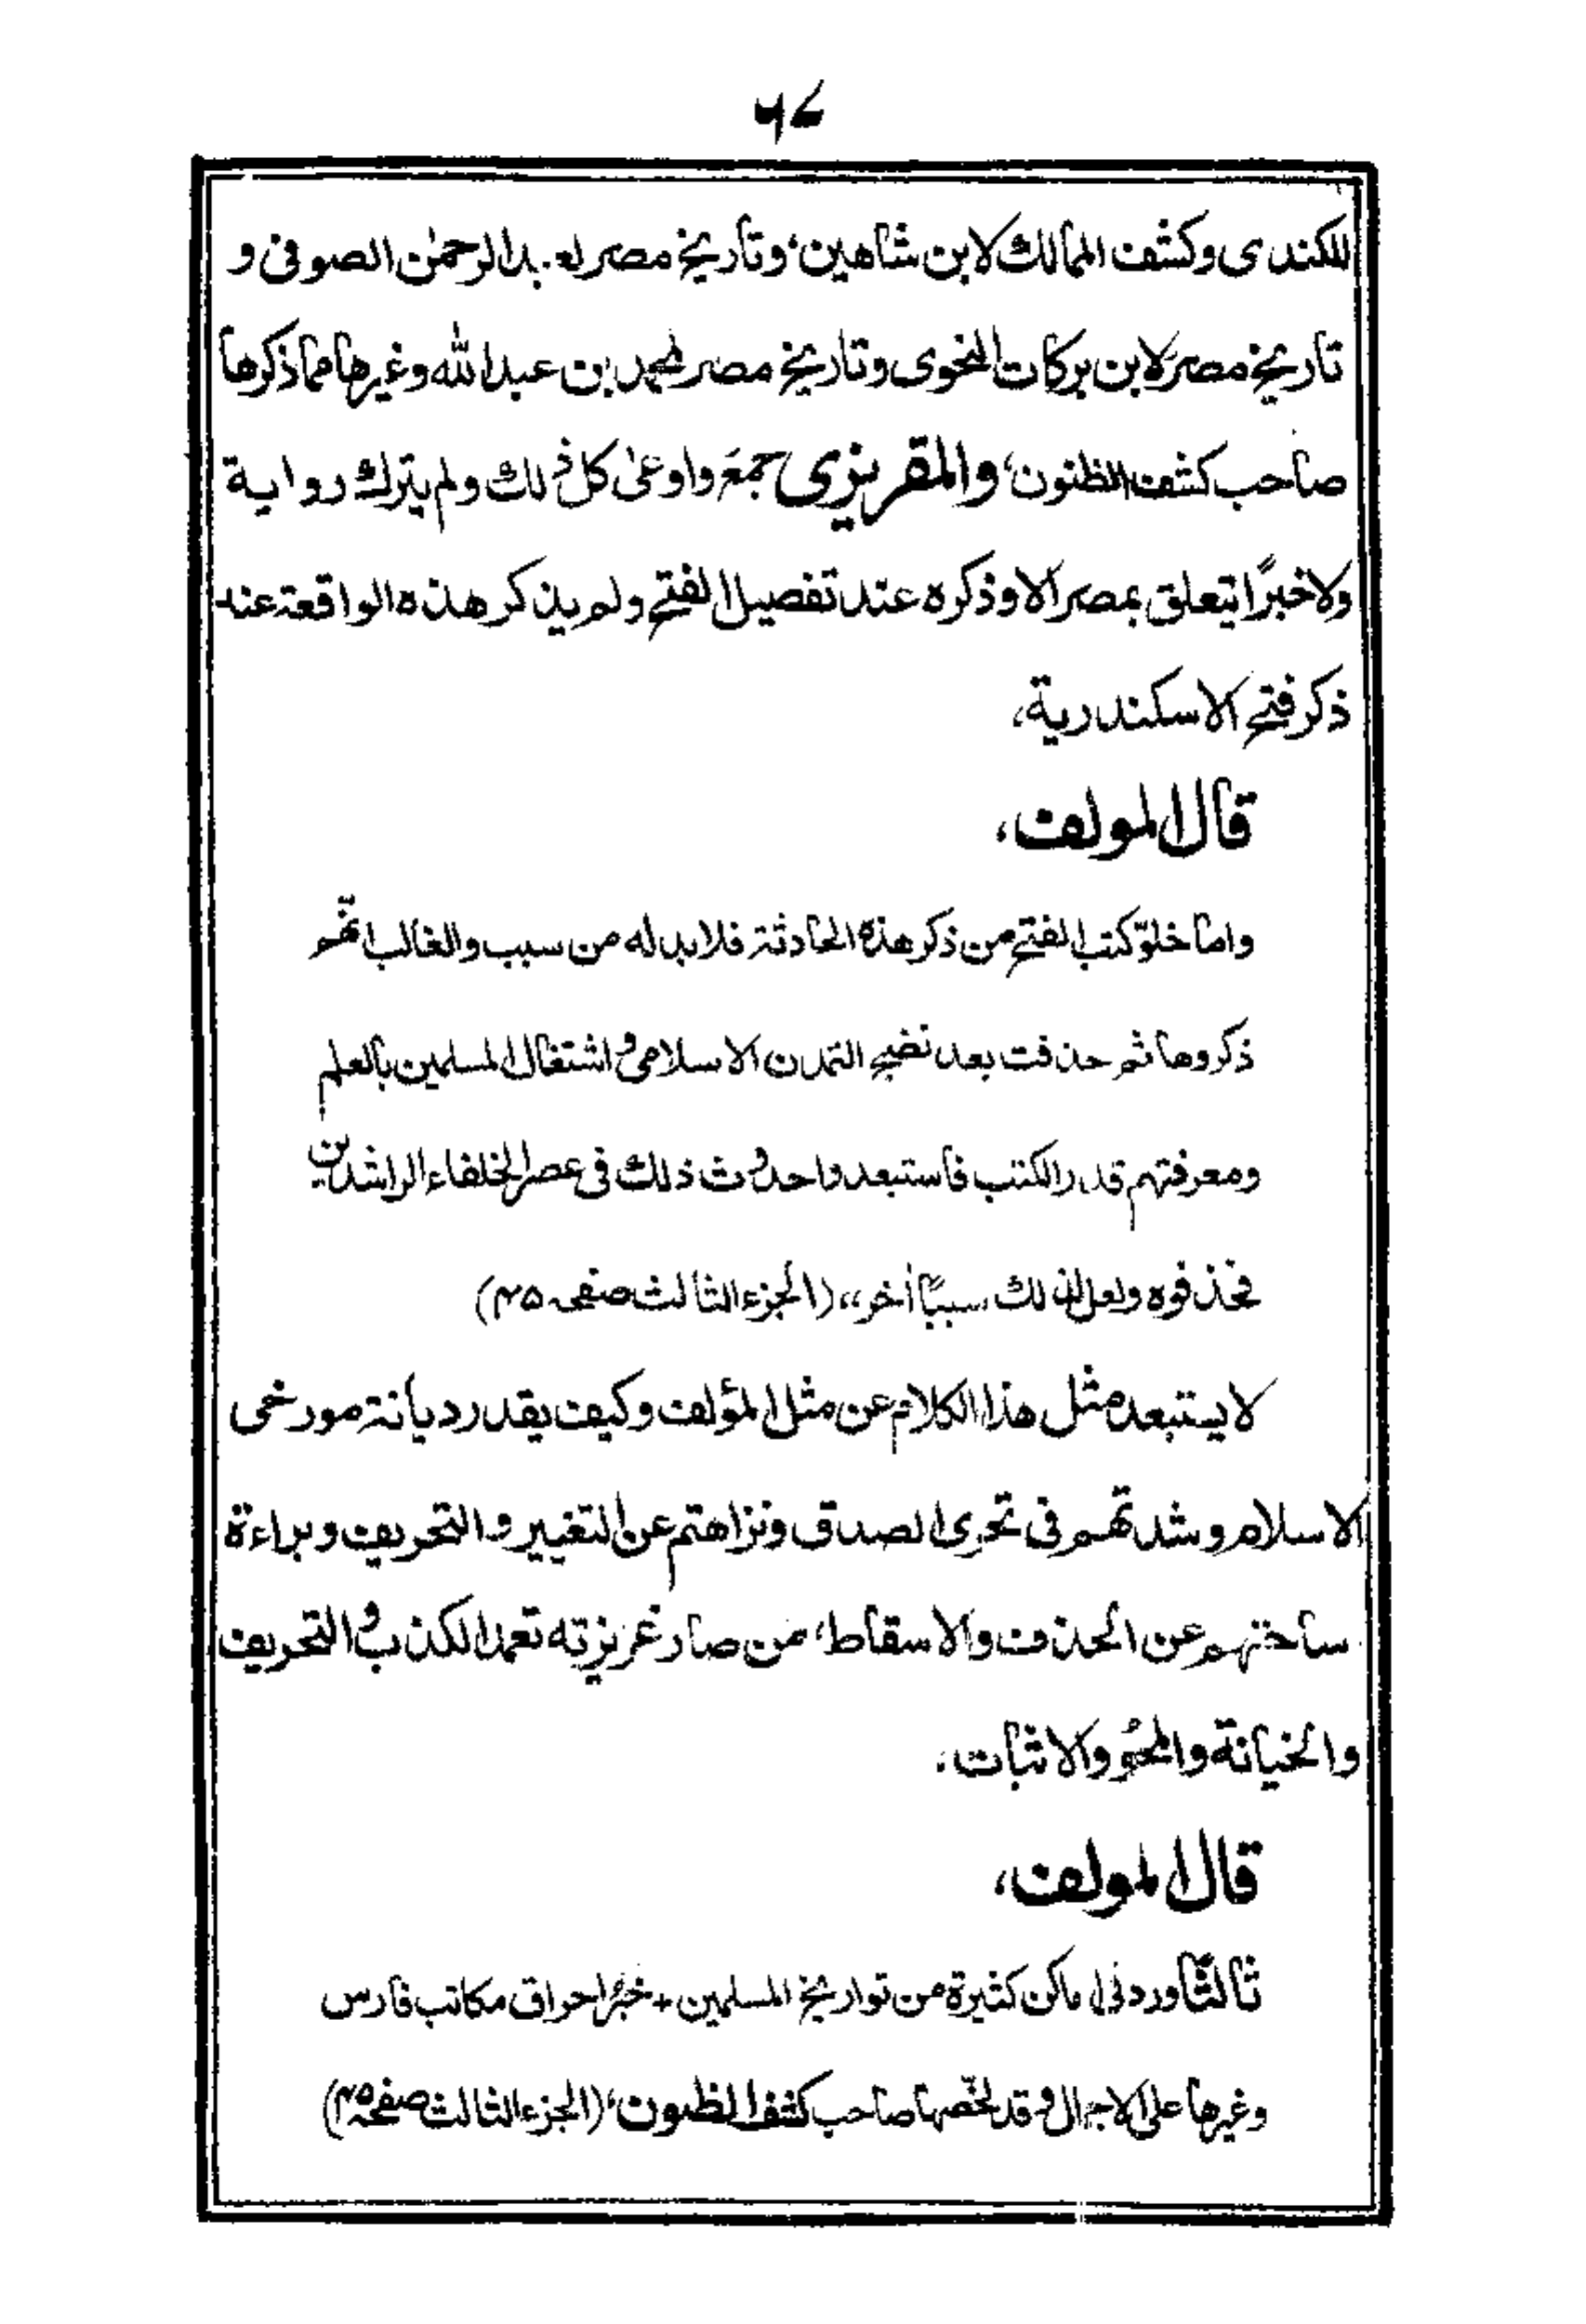 ۶۷
للكندى وكشف الممالك لابن شاهين، وتاريخ مصر لعبدالرحمٰن الصوفى و
تاريخ مصر لابن بركات النحوى وتاريخ مصر لمحمد بن عبدالله وغيرها مما ذكرها
صاحب كشف الظنون، والمقريزى جمع واوعىٰ كل ذلك ولم يترك رواية
ولا خبرًا يتعلق بمصر الا وذكره عند تفصيل الفتح ولم يذكر هذه الواقعة عند
ذكر فتح الاسكندرية،
قال المولف،
واما خلوّ كتب الفتح من ذكر هذه الحادثة فلا بد له من سبب والغالب انّهم
ذكروها ثم حذفت بعد نضج التمدن الاسلامى واشتغال المسلمين بالعلم
ومعرفتهم قدر الكتب فاستبعدوا حدوث ذلك فى عصر الخلفاء الراشدين
فحذفوه ولعل لذلك سببًا أخر،، (الجزء الثالث صفحه ۴۵)
لا يستبعد مثل هذا الكلام عن مثل المؤلف وكيف يقدر ديانة مورخى
الاسلام وشدتهم فى تحرى الصدق ونزاهتم عن التغيير والتحريف وبراءة
ساحتهم عن الحذف والاسقاط، من صار غريزته تعمد الكذب والتحريف
والخيانة والمحُو والاثبات،
قال المولف،
ثالثًا ورد فى اماكن كثيرة من تواريخ المسلمين + خبر احراق مكاتب فارس
وغيرها على الاجمال وقد لخّصها صاحب كشف الظنون، (الجزء الثالث صفحه ۴۵)